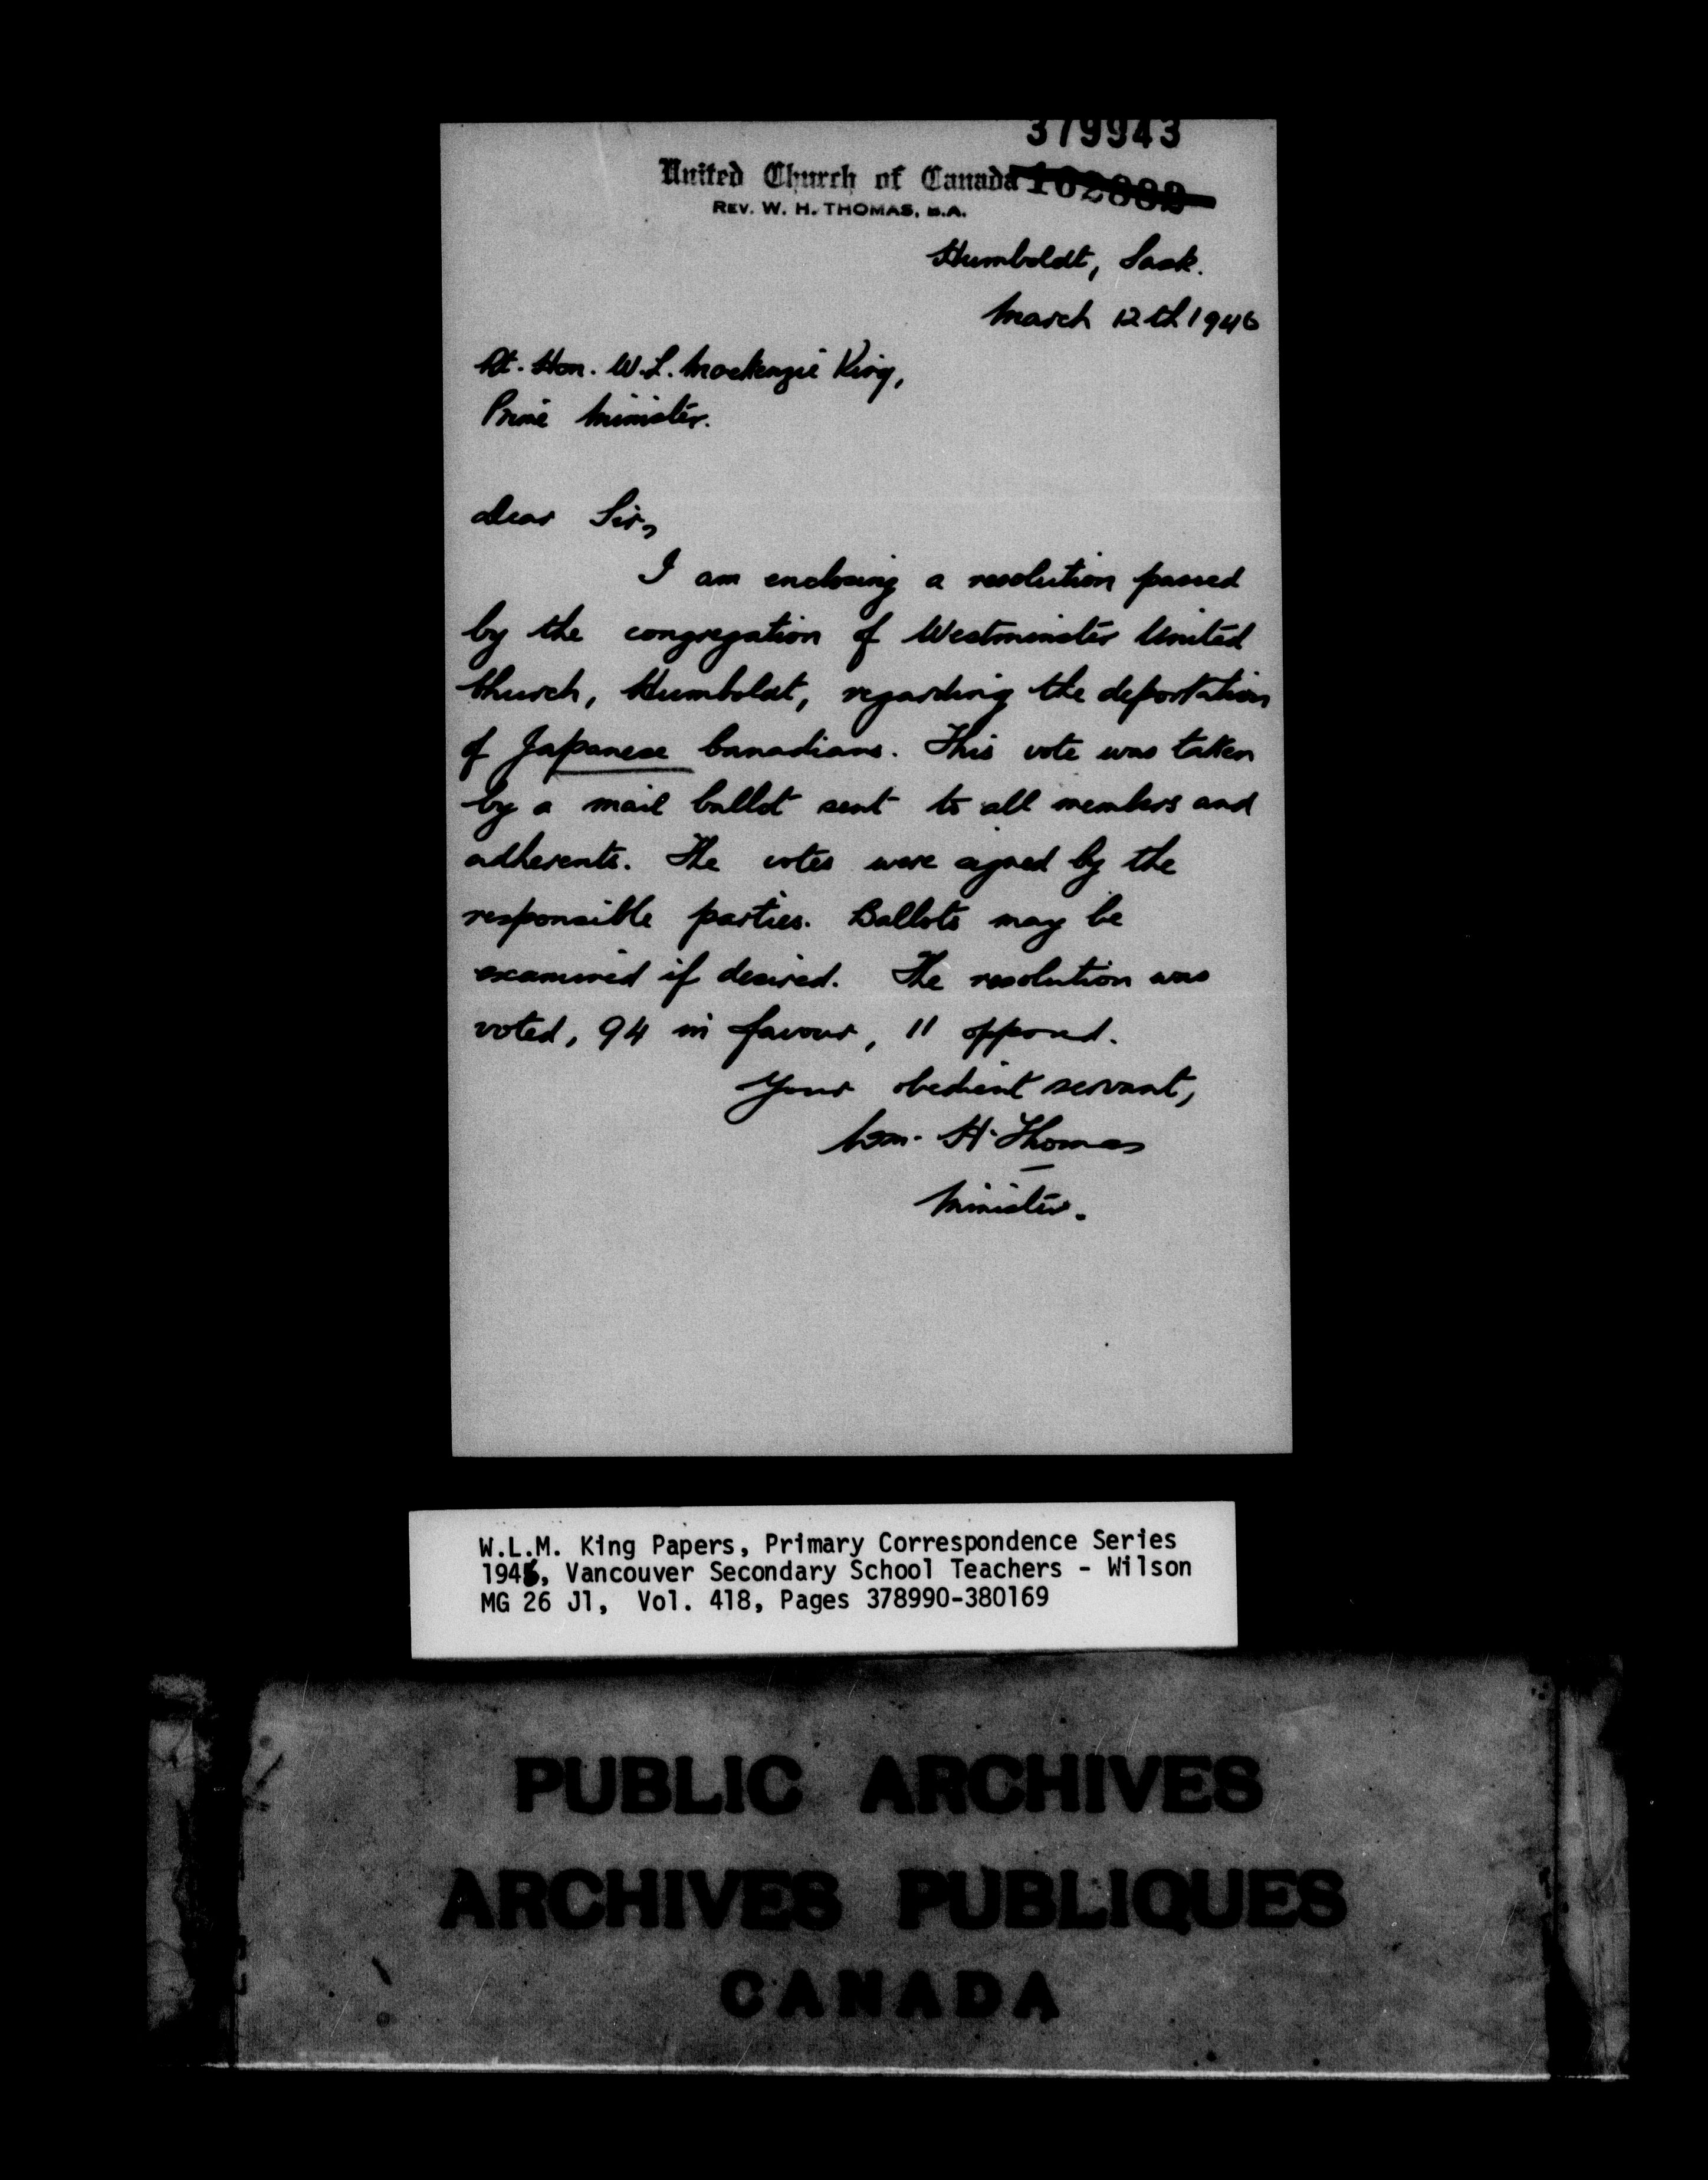 379943
United Church of Canada
REV. W. H. THOMAS, B.A.
Humboldt, Sask.
March 12th 1946
Rt. Hon. W. L. Mackenzie King,
Prime Minister.
Dear Sir,
I am enclosing a resolution passed
by the congregation of Westminster United
Church, Humboldt, regarding the deportation
of Japanese Canadians. This vote was taken
by a mail ballot sent to all members and
adherents. The votes were signed by the
responsible parties. Ballots may be
examined if desired. The resolution was
voted, 94 in favour, 11 opposed.
Your obedient servant,
Wm. H. Thomas
Minister.
W.L.M. King Papers, Primary Correspondence Series
1946, Vancouver Secondary School Teachers - Wilson
MG 26 J1, Vol. 418, Pages 378990-380169
PUBLIC ARCHIVES
ARCHIVES PUBLIQUES
CANADA